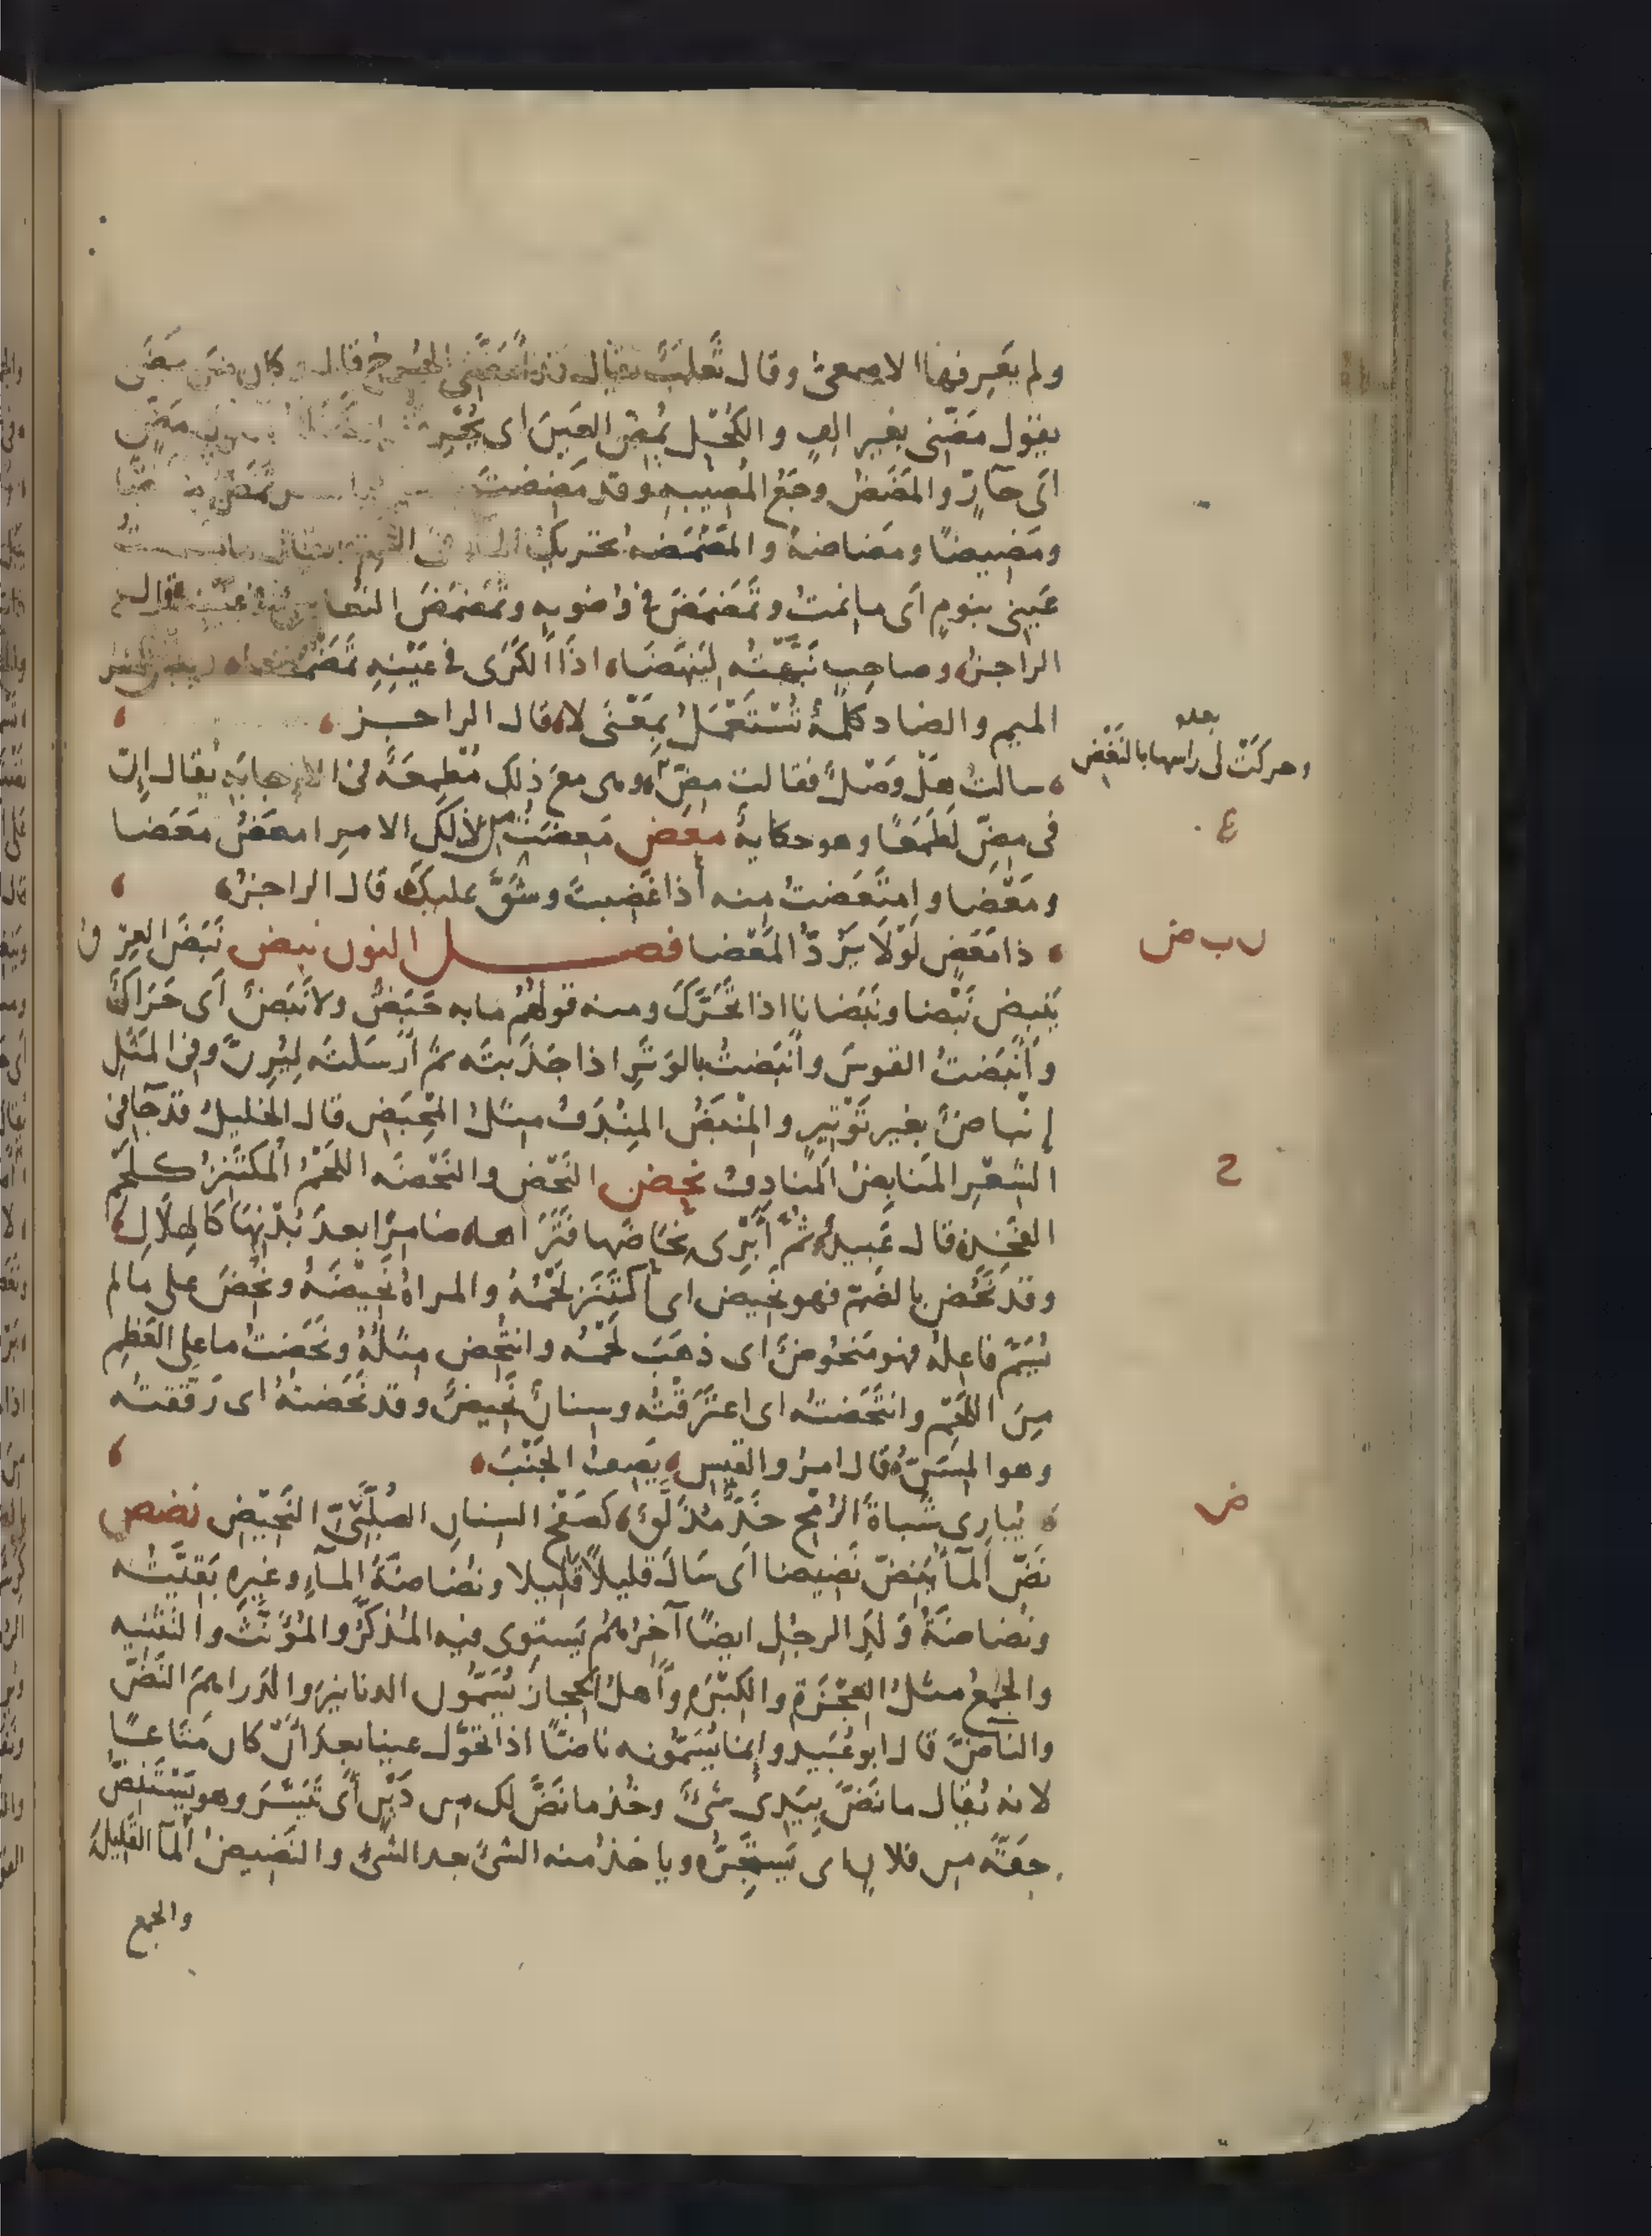 ولم يعرفها الاصمعىّ وقال ثَعلبٌ يقال قد اَمَضَّنى الجُرح قال وكان من مضى
يقول مَضّنى بغير الفٍ والكُحْل يُمِضّ العينَ اى يُحْرِق
اَى حَارّ والمَضَضُ وجَعُ المُصيبه وقد مَضِضتَ
ومَضِيضًا ومَضاضةً والمَضْمَضه تحريك الماء فى الفم ويقال ما مضمضتُ
عَينى بنومٍ اَى ما نمتُ وتَمَضمَضَ فى وُضوىه وتَمَضمَضَ النعاسُ فى عينه قال
الراجزُ وصاحبٍ نَبَّهتُه لِيَنهَضَا اذَا الكَرَى فى عَيْنِهِ تَمَضْمَضَا
الميم والضاد كَلمةٌ تُسْتَعْمَلُ بِمَعْنَى لا قال الراجز
سالتُ هَلْ وَصْلٌ فقالت مِضِّ وهى معَ ذلِك مُطْمِعَةٌ فى الاِجابَةِ يُقال اِنّ
بعده
وحركَتْ لى راسها بالنَغْض
فى مِضِّ لَطَمَعًا وهو حكايةٌ معض مَعِضتُ من ذلِكَ الامرِ امعَضُ مَعَضا
ع
ومَعْضا وامتَعَضتُ منه اذا غَضِبتَ وشَقَّ عليكَ قال الراجزُ
ذا مَعَضٍ لَوْلَا يَرُدّ المَعْضا فصل النون نبض نَبَضَ العِرْق
ن ب ض
يَنبِض نَبْضا ونَبَضانا اذا تَحَرَّكَ ومنه قولُهُم ما به حَبَضٌ ولا نَبَضٌ اَى حَرَاكٌ
واَنْبَضتُ القوسَ واَنبَضتُ بالوَتَرِ اذا جَذَبتَه ثم اَرسَلتَه لِيَرِنَّ وفى المَثَلِ
إنْباضٌ بغير تَوْتِيرٍ والمِنْبَضُ المِنْدَفُ مِثلُ المِحْبَضِ قال الخليلُ قد جآ فى
الشِعْرِ المَنَابِضُ المَنادِفُ نحض النَحْض والنَحْضَه اللحْمُ المُكتَنِزُ كلَحْم
ح
الفَخِذ قال عَبيدٌ ثُمّ اَبْرِى نِحَاضَها فَتَرَاها ضامِرًا بعدَ بُدْنِها كَالهِلَالِ
وقد نَحُض بالضمّ فهو نَحيضٌ اى اكتَنَز لَحْمُهُ والمراةُ نَحيْضَةٌ ونُحِضَ على ما لم
يُسَمّ فاعِلُهُ فهو مَنحُوضٌ اى ذهَبَ لحمُه وانتُحِض مِثلُهُ ونَحَضتُ ما على العَظم
مِنَ اللَحْم وانتَحَضتُه اى اعتَرَقْتُه وسِنانٌ نَحيضٌ وقد نَحَضتُهُ اى رَقّقتُه
وهو المِسَنّ قال امرؤ القيسِ يَصِفُ الجَنْبَ
يُبارى شَباةَ الرُمْح خَدٌّ مُذَلَّقٌ كَصَفْح السِنانِ الصُلَّبِىّ النَحيْضِ نضض
ض
نَضّ المآءُ يَنِضّ نَضيضا اَى سَالَ قليلًا قَليلا ونُضاضَةُ المآءِ وغيرِه بَقيَّتُه
ونُضاضَةُ وَلَدِ الرجُلِ ايضًا آخِرُهُم يَستوِى فيه المُذكّرُ والمُؤنّثُ والتثنيه
والجَمْعُ مثلُ العِجْزَةِ والكِبْرَةِ واَهلُ الحِجاز يُسَمُّون الدنانيرَ والدَراهمَ النَضَّ
والناضَّ قال ابو عُبَيد وانما يُسَمُّونه ناضًّا اذا تحَوَّل عينا بعدَ اَنْ كان مَتاعًا
لانه يُقال ما نَضَّ بِيَدِى شَىءٌ وخُذ ما نَضَّ لك من دَيْنٍ اَى تَيَسَّرَ وهو يَسْتَنِضّ
حقّه من فلانٍ اى يَسْتَنجِزُه وياخذُ منه الشئَ بعد الشئ والنَضيضُ المآ القَليلُ
والجمع